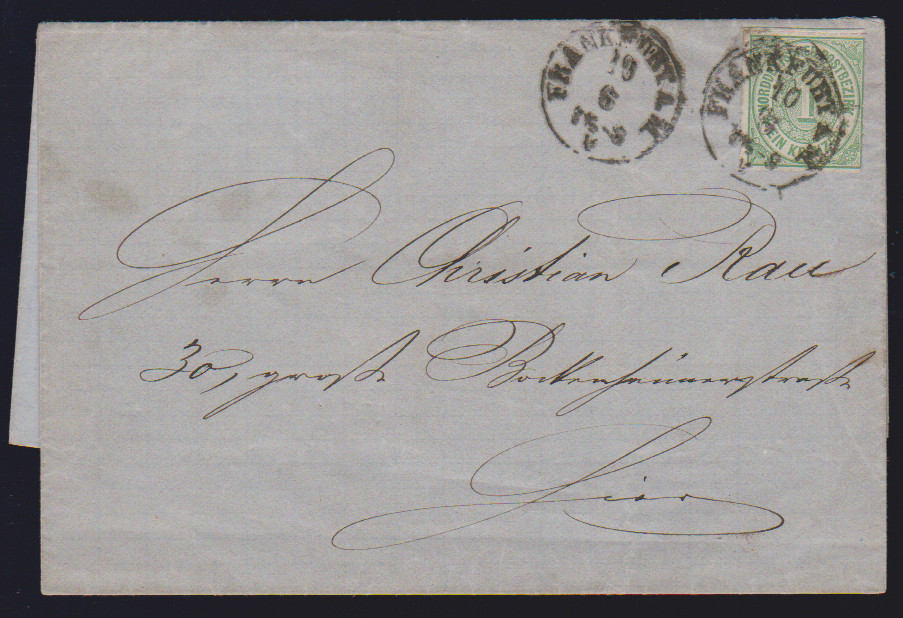 FRANKFURT A M
19
6
FRANKFURT A M
10
NORDD. POSTBEZIRK
1
EIN KREUZER
Herrn Christian Rau
30, große Bockenheimerstraße
Hier